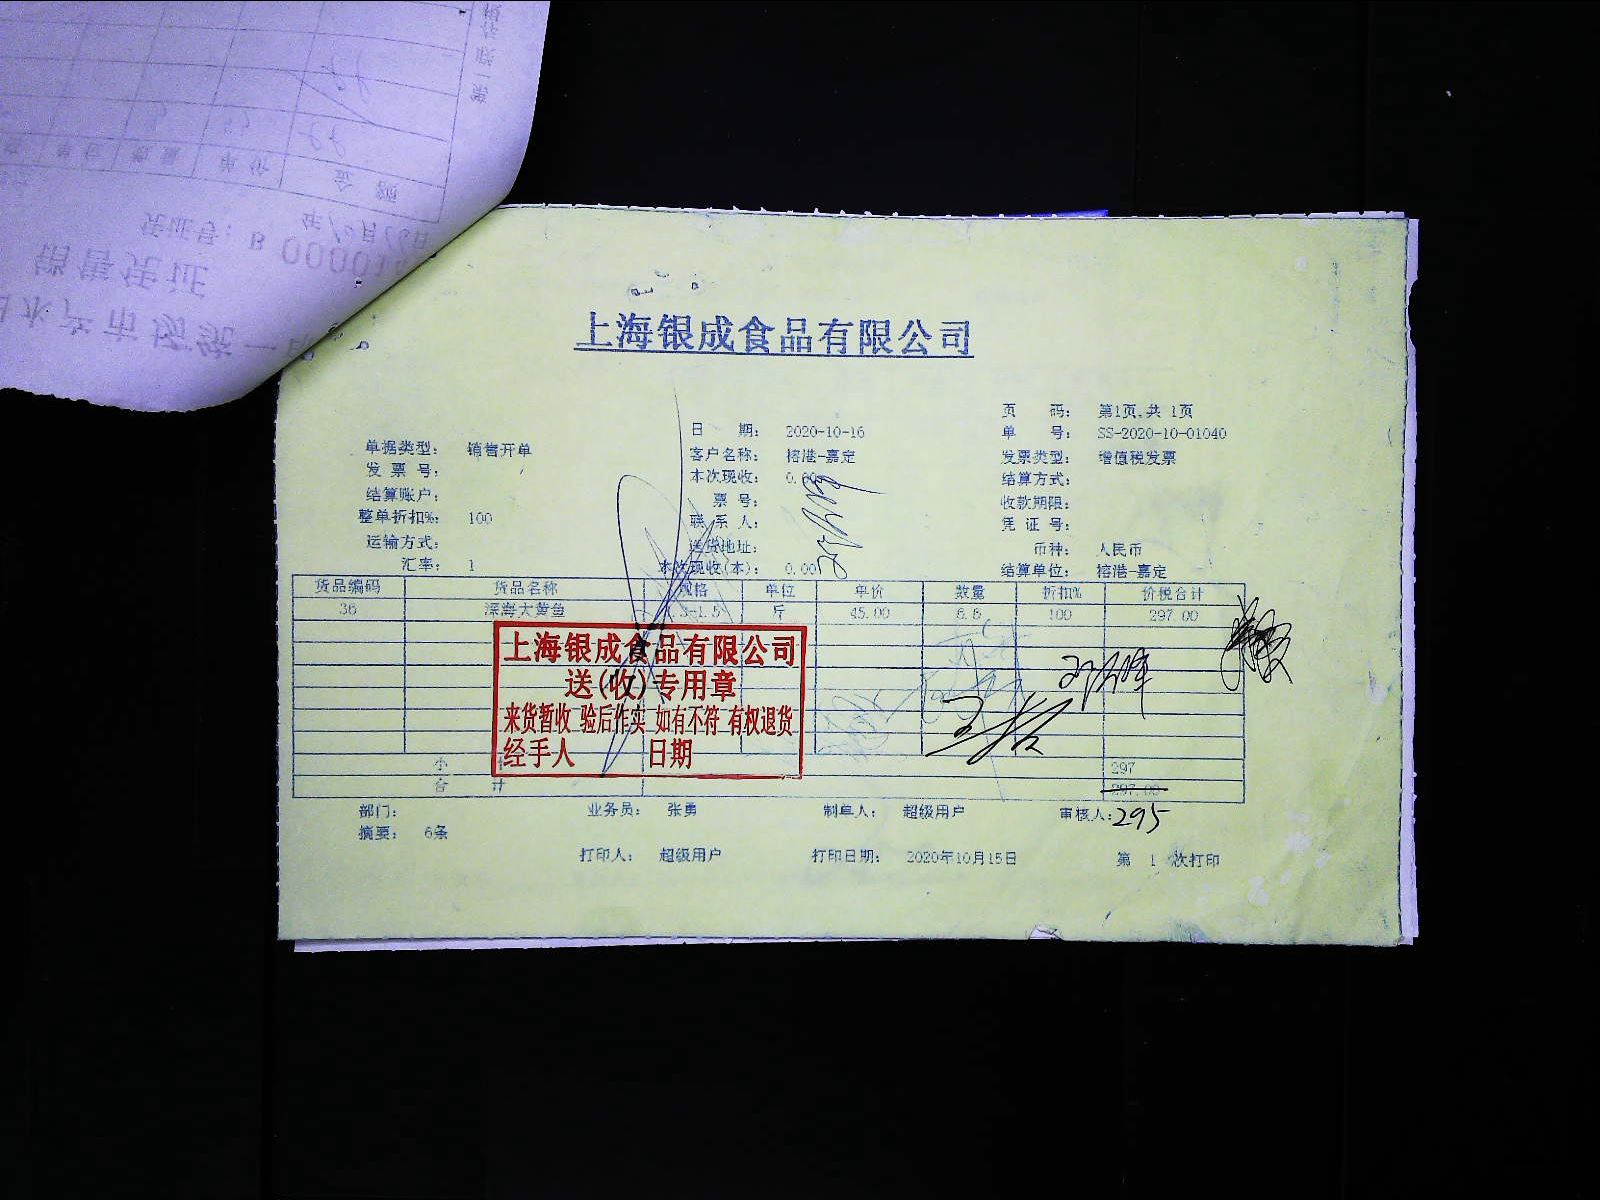 上海银成食品有限公司
页 码： 第1页,共 1页
日 期： 2020-10-16 单 号： SS-2020-10-01040
单据类型： 销售开单 客户名称： 榕港-嘉定 发票类型： 增值税发票
发 票 号： 本次现收： 0.00 结算方式：
结算账户： 票 号： 收款期限：
整单折扣%： 100 联 系 人： 凭 证 号：
运输方式： 送货地址： 币种： 人民币
汇率： 1 本次现收(本)： 0.00 结算单位： 榕港-嘉定
货品编码 货品名称 规格 单位 单价 数量 折扣% 价税合计
36 深海大黄鱼 斤 45.00 6.6 100 297.00
上海银成食品有限公司
送(收)专用章
来货暂收 验后作实 如有不符 有权退货
经手人 日期
小 计 297
合 计 297.00
部门： 业务员： 张勇 制单人： 超级用户 审核人： 295
摘要： 6条
打印人： 超级用户 打印日期： 2020年10月15日 第 1 次打印
销售凭证
凭证号： B
金 额
单 价
数 量